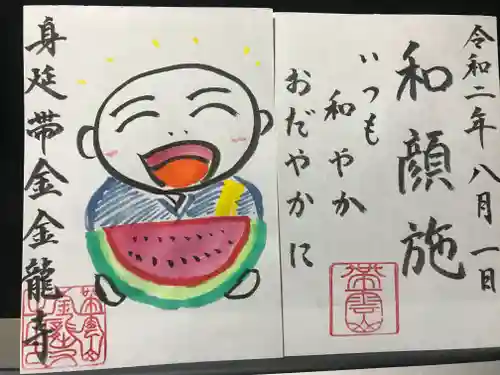 令和二年八月一日
和顔施
いつも
和やか
おだやかに
身延帯金金龍寺